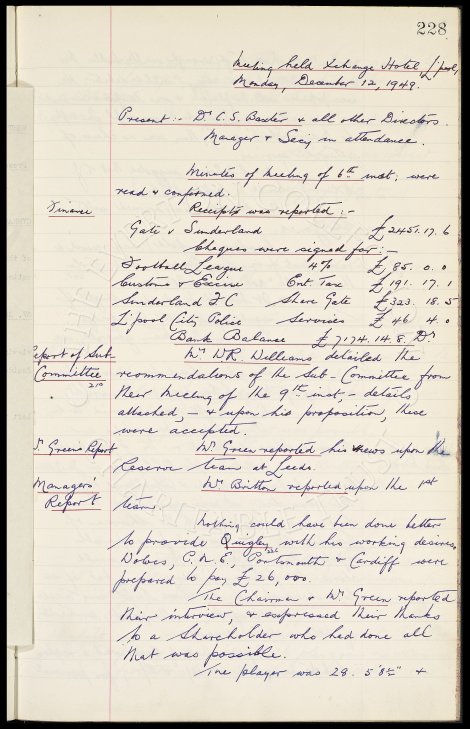 228
Meeting held Xchange Hotel, L'pool,
Monday, December 12, 1949.
Present :- Dr. C.S. Baxter & all other Directors.
Manager & Secy in attendance.
Minutes of meeting of 6th inst; were
read & confirmed.
Finance
Receipts was reported :-
Gate v Sunderland £2451. 17. 6
Cheques were signed for :-
Football League 4% £ 85. 0. 0
Customs & Excise Ent. Tax £ 191. 17. 1
Sunderland FC Share Gate £323. 18. 5
L'pool City Police Services £ 46. 4. 0
Bank Balance £7174. 14. 8. Dr.
Report of Sub-
Committee
210
Mr. W.R. Williams detailed the
recommendations of the Sub-Committee from
their meeting of the 9th inst, - details
attached, - & upon his proposition, these
were accepted.
Green's Report
Mr. Green reported his views upon the
Reserve team at Leeds.
Managers'
Report
Mr. Britton reported upon the 1st
team.
Nothing could have been done better
to provide Quigley with his working desires.
Wolves, P.N.E., Portsmouth & Cardiff were
prepared to pay £26,000.
The Chairman & Mr. Green reported
their interview, & expressed their thanks
to a shareholder who had done all
that was possible.
The player was 28. 5'8½" &